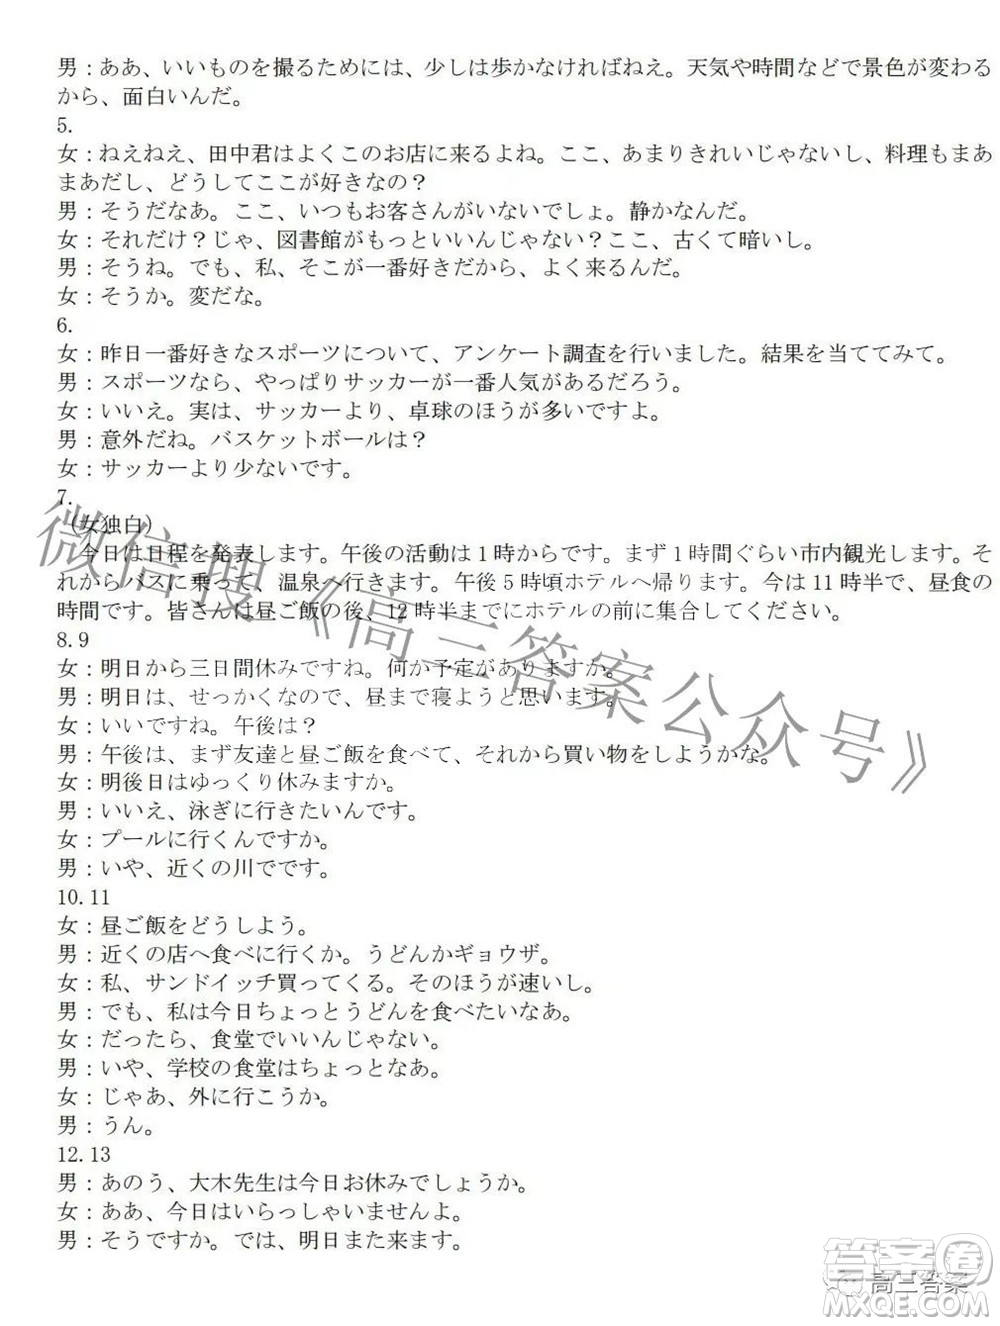 男：ああ、いいものを撮るためには、少しは歩かなければねえ。天気や時間などで景色が変わる
から、面白いんだ。
5.
女：ねえねえ、田中君はよくこのお店に来るよね。ここ、あまりきれいじゃないし、料理もまあ
まあだし、どうしてここが好きなの？
男：そうだなあ。ここ、いつもお客さんがいないでしょ。静かなんだ。
女：それだけ？じゃ、図書館がもっといいんじゃない？ここ、古くて暗いし。
男：そうね。でも、私、そこが一番好きだから、よく来るんだ。
女：そうか。変だな。
6.
女：昨日一番好きなスポーツについて、アンケート調査を行いました。結果を当ててみて。
男：スポーツなら、やっぱりサッカーが一番人気があるだろう。
女：いいえ。実は、サッカーより、卓球のほうが多いですよ。
男：意外だね。バスケットボールは？
女：サッカーより少ないです。
7.
（女独白）
今日は日程を発表します。午後の活動は１時からです。まず１時間ぐらい市内観光します。そ
れからバスに乗って、温泉へ行きます。午後５時頃ホテルへ帰ります。今は 11 時半で、昼食の
時間です。皆さんは昼ご飯の後、12 時半までにホテルの前に集合してください。
8.9
女：明日から三日間休みですね。何か予定がありますか。
男：明日は、せっかくなので、昼まで寝ようと思います。
女：いいですね。午後は？
男：午後は、まず友達と昼ご飯を食べて、それから買い物をしようかな。
女：明後日はゆっくり休みますか。
男：いいえ、泳ぎに行きたいんです。
女：プールに行くんですか。
男：いや、近くの川でです。
10.11
女：昼ご飯をどうしよう。
男：近くの店へ食べに行くか。うどんかギョウザ。
女：私、サンドイッチ買ってくる。そのほうが速いし。
男：でも、私は今日ちょっとうどんを食べたいなあ。
女：だったら、食堂でいいんじゃない。
男：いや、学校の食堂はちょっとなあ。
女：じゃあ、外に行こうか。
男：うん。
12.13
男：あのう、大木先生は今日お休みでしょうか。
女：ああ、今日はいらっしゃいませんよ。
男：そうですか。では、明日また来ます。
微信搜《高三答案公众号》
答案圈
高三答案
MXQE.COM